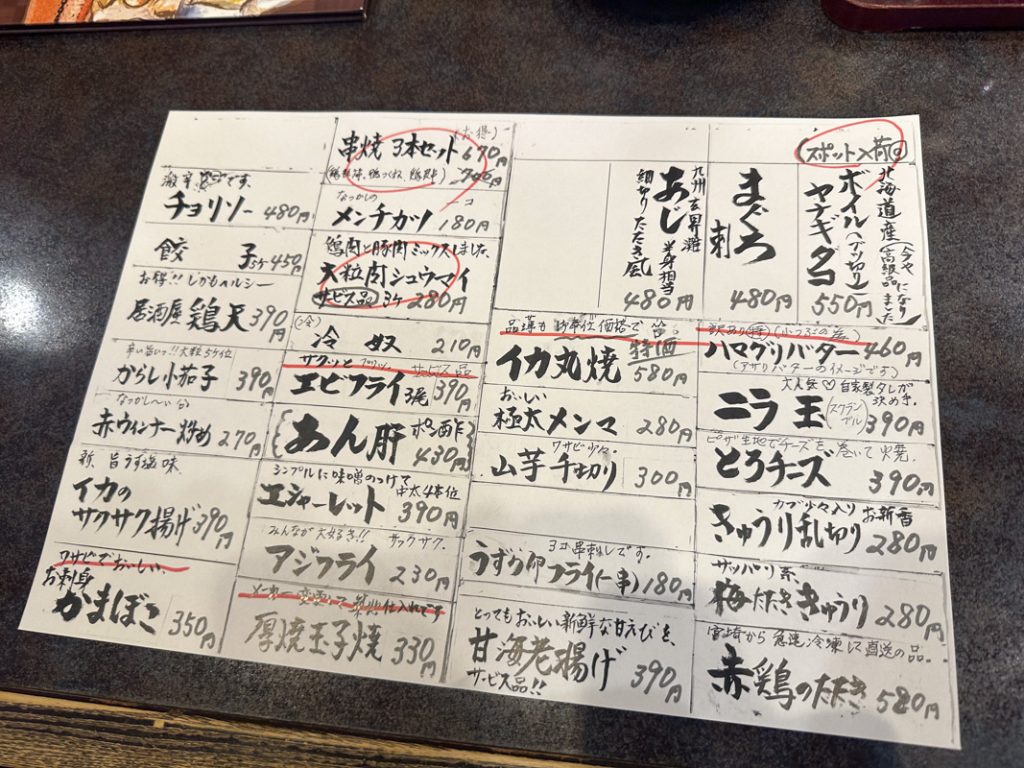 (スポット入荷)
北海道産(今や高級品になりました)
ボイル(ブツ切り)
ヤナギダコ
550円
まぐろ
刺
480円
九州玄界灘
あじ
半身相当
細切りたたき風
480円
(お得)
串焼 3本セット 670円
700円
なつかしの 一コ
メンチカツ 180円
鶏肉と豚肉ミックスしました。
大粒肉シュウマイ
サービス品 3ケ 280円
(冷)
冷奴 210円
サクッと サービス品
エビフライ 3尾 390円
あん肝 ポン酢 430円
シンプルに味噌のつけて
エシャーレット 中太4本位 390円
みんなが大好き!! サックサク。
アジフライ 230円
メーカー変更にて
厚焼玉子焼 330円
激辛です。
チョリソー 480円
餃子 5ケ450円
お得!! しかもヘルシー
居酒屋 鶏天 390円
辛い旨いっ!! 大粒5ケ位
からし小茄子 390円
なつかし〜い
赤ウィンナー炒め 270円
新、旨うす塩味
イカの
サクサク揚げ 390円
ワサビでおいしい、
お刺身
かまぼこ 350円
イカ丸焼 特価 580円
おいしい
極太メンマ 280円
ワサビ少々
山芋千切り 300円
3コ串刺しです。
うずら卵フライ(一串) 180円
とってもおいしい新鮮な甘えびを、
甘海老揚げ 390円
サービス品!!
ハマグリバター 460円
(アサリバターのイメージです)
大人気♡自家製タレが決め手。
ニラ玉(スクランブル) 390円
ピザ生地でチーズを巻いて焼。
とろチーズ 390円
カブ少々入り お新香
きゅうり乱切り 280円
サッパリ系
梅たたききゅうり 280円
宮崎から急速冷凍して直送の品。
赤鶏のたたき 580円